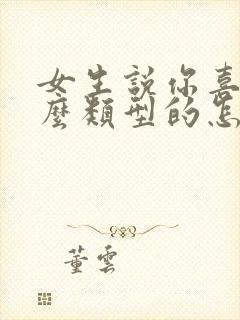 女生説你喜
麼類型的怎
董雲